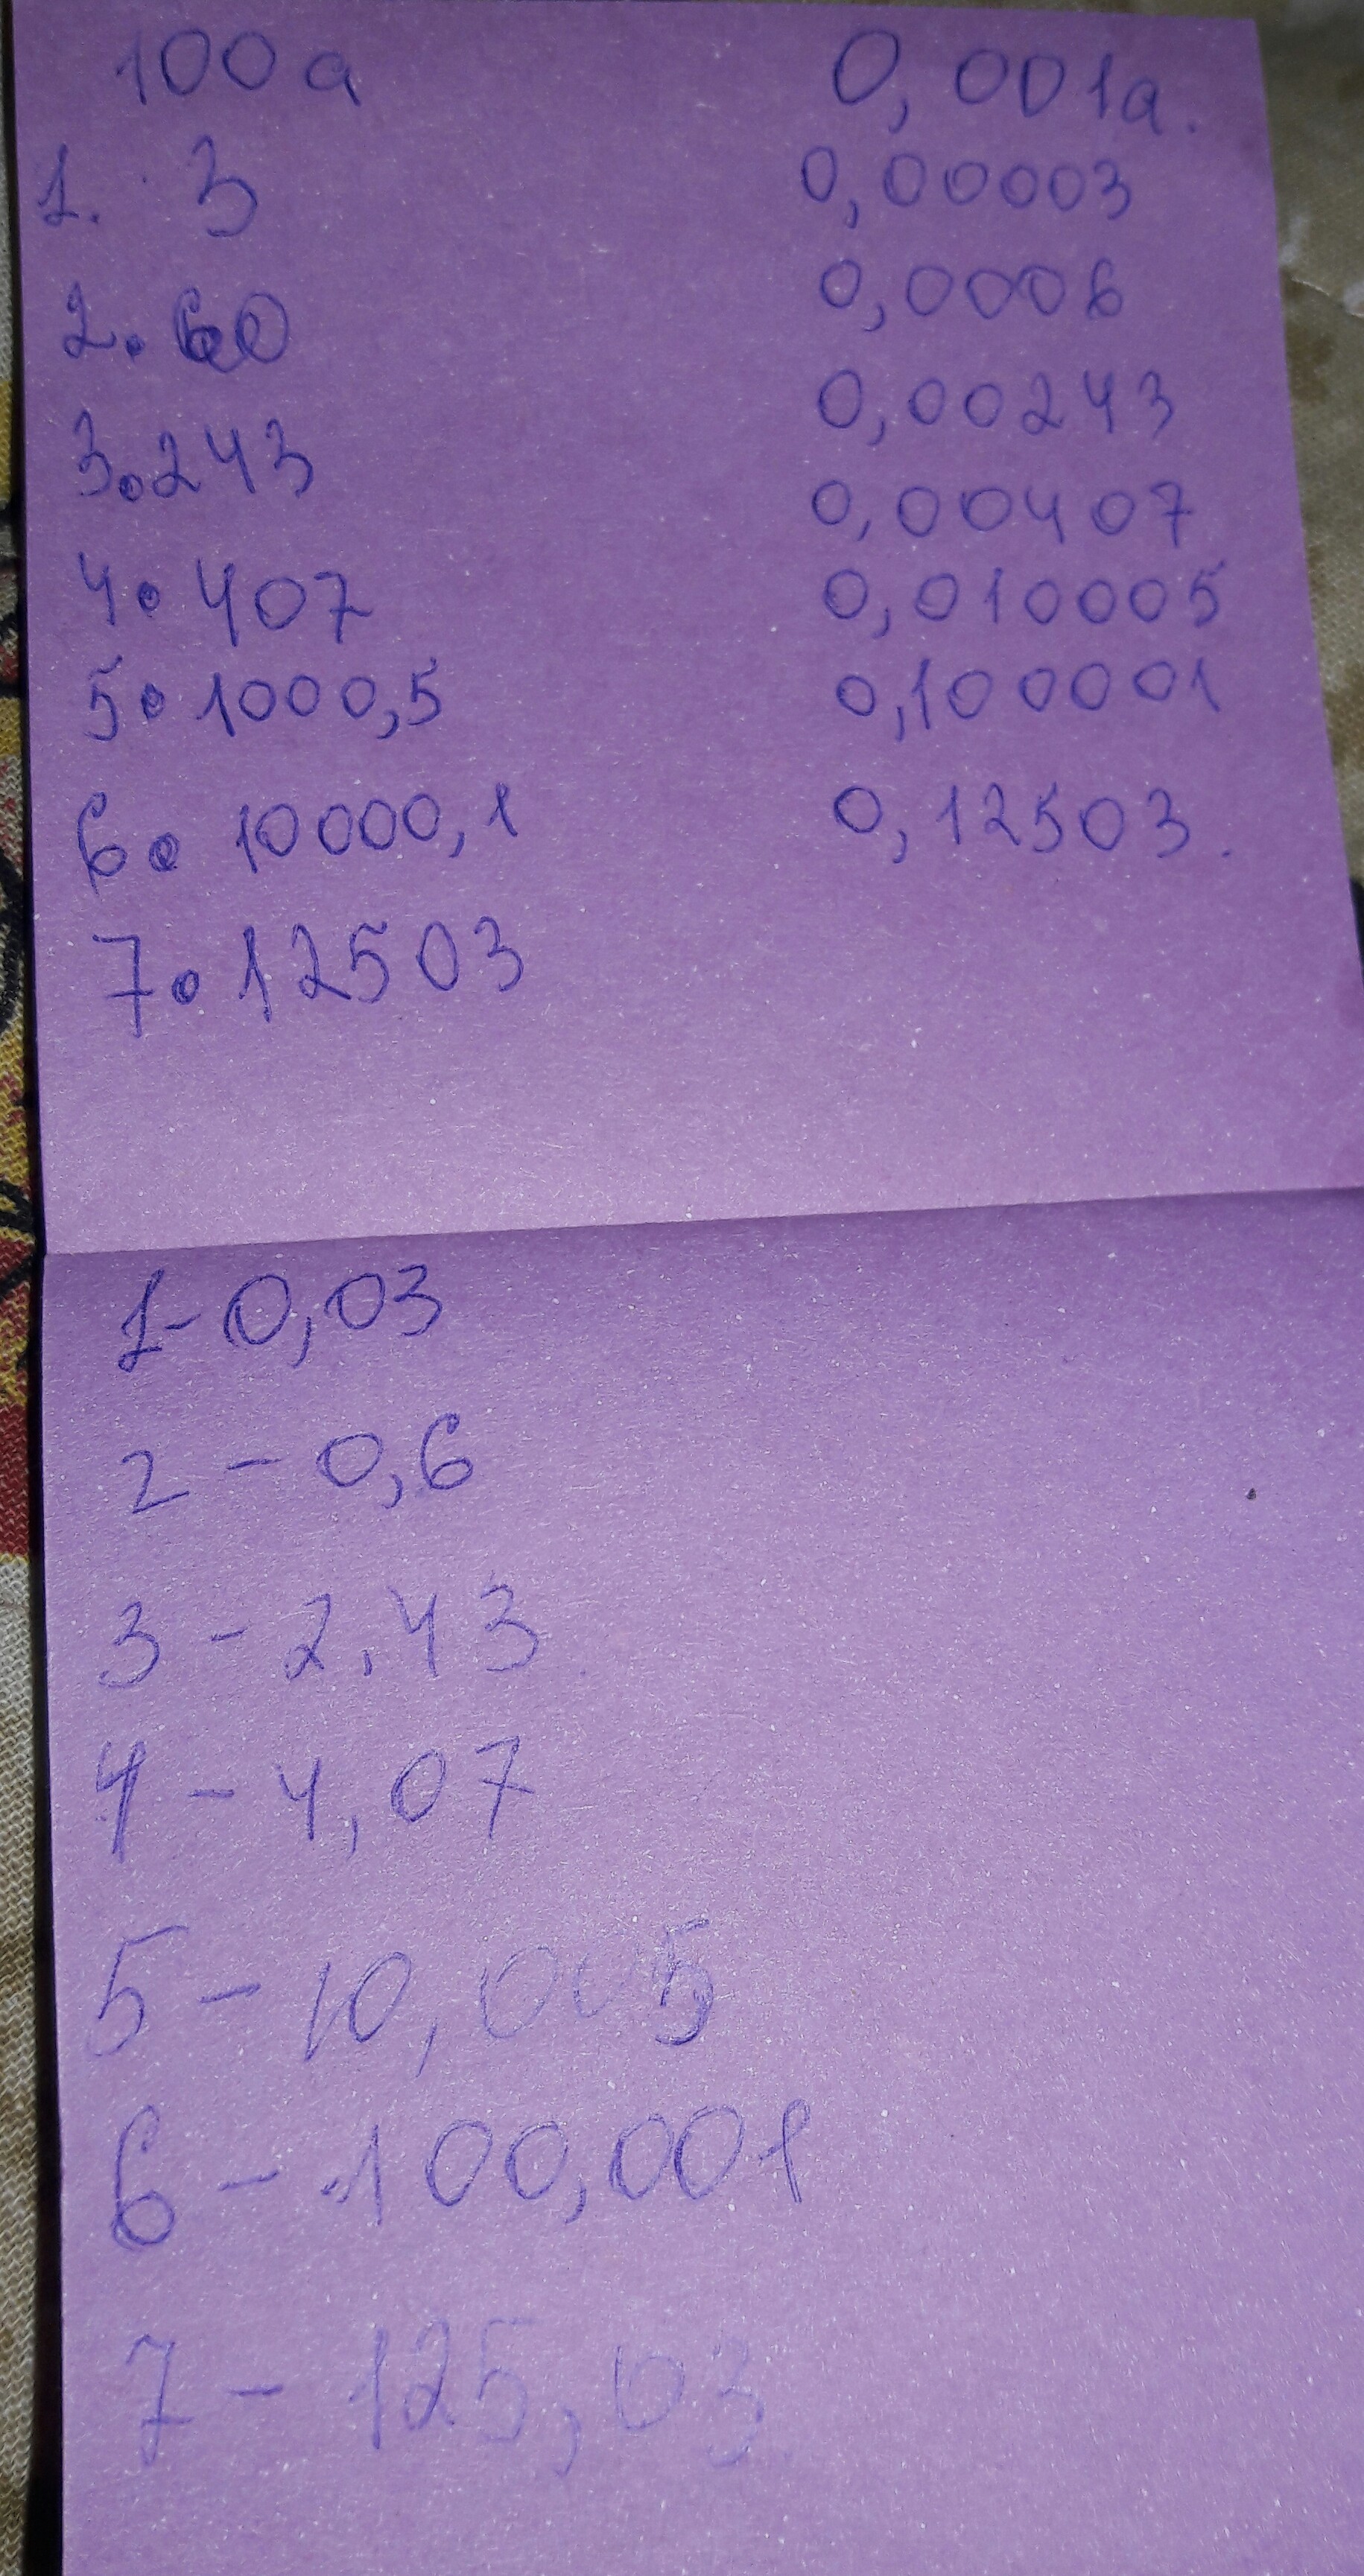 100a 0,001a.
1. 3 0,00003
2. 60 0,0006
3. 243 0,00243
4. 407 0,00407
5. 1000,5 0,010005
6. 10000,1 0,100001
7. 12503 0,12503.
1-0,03
2-0,6
3-2,43
4-4,07
5-10,005
6-100,001
7-125,03